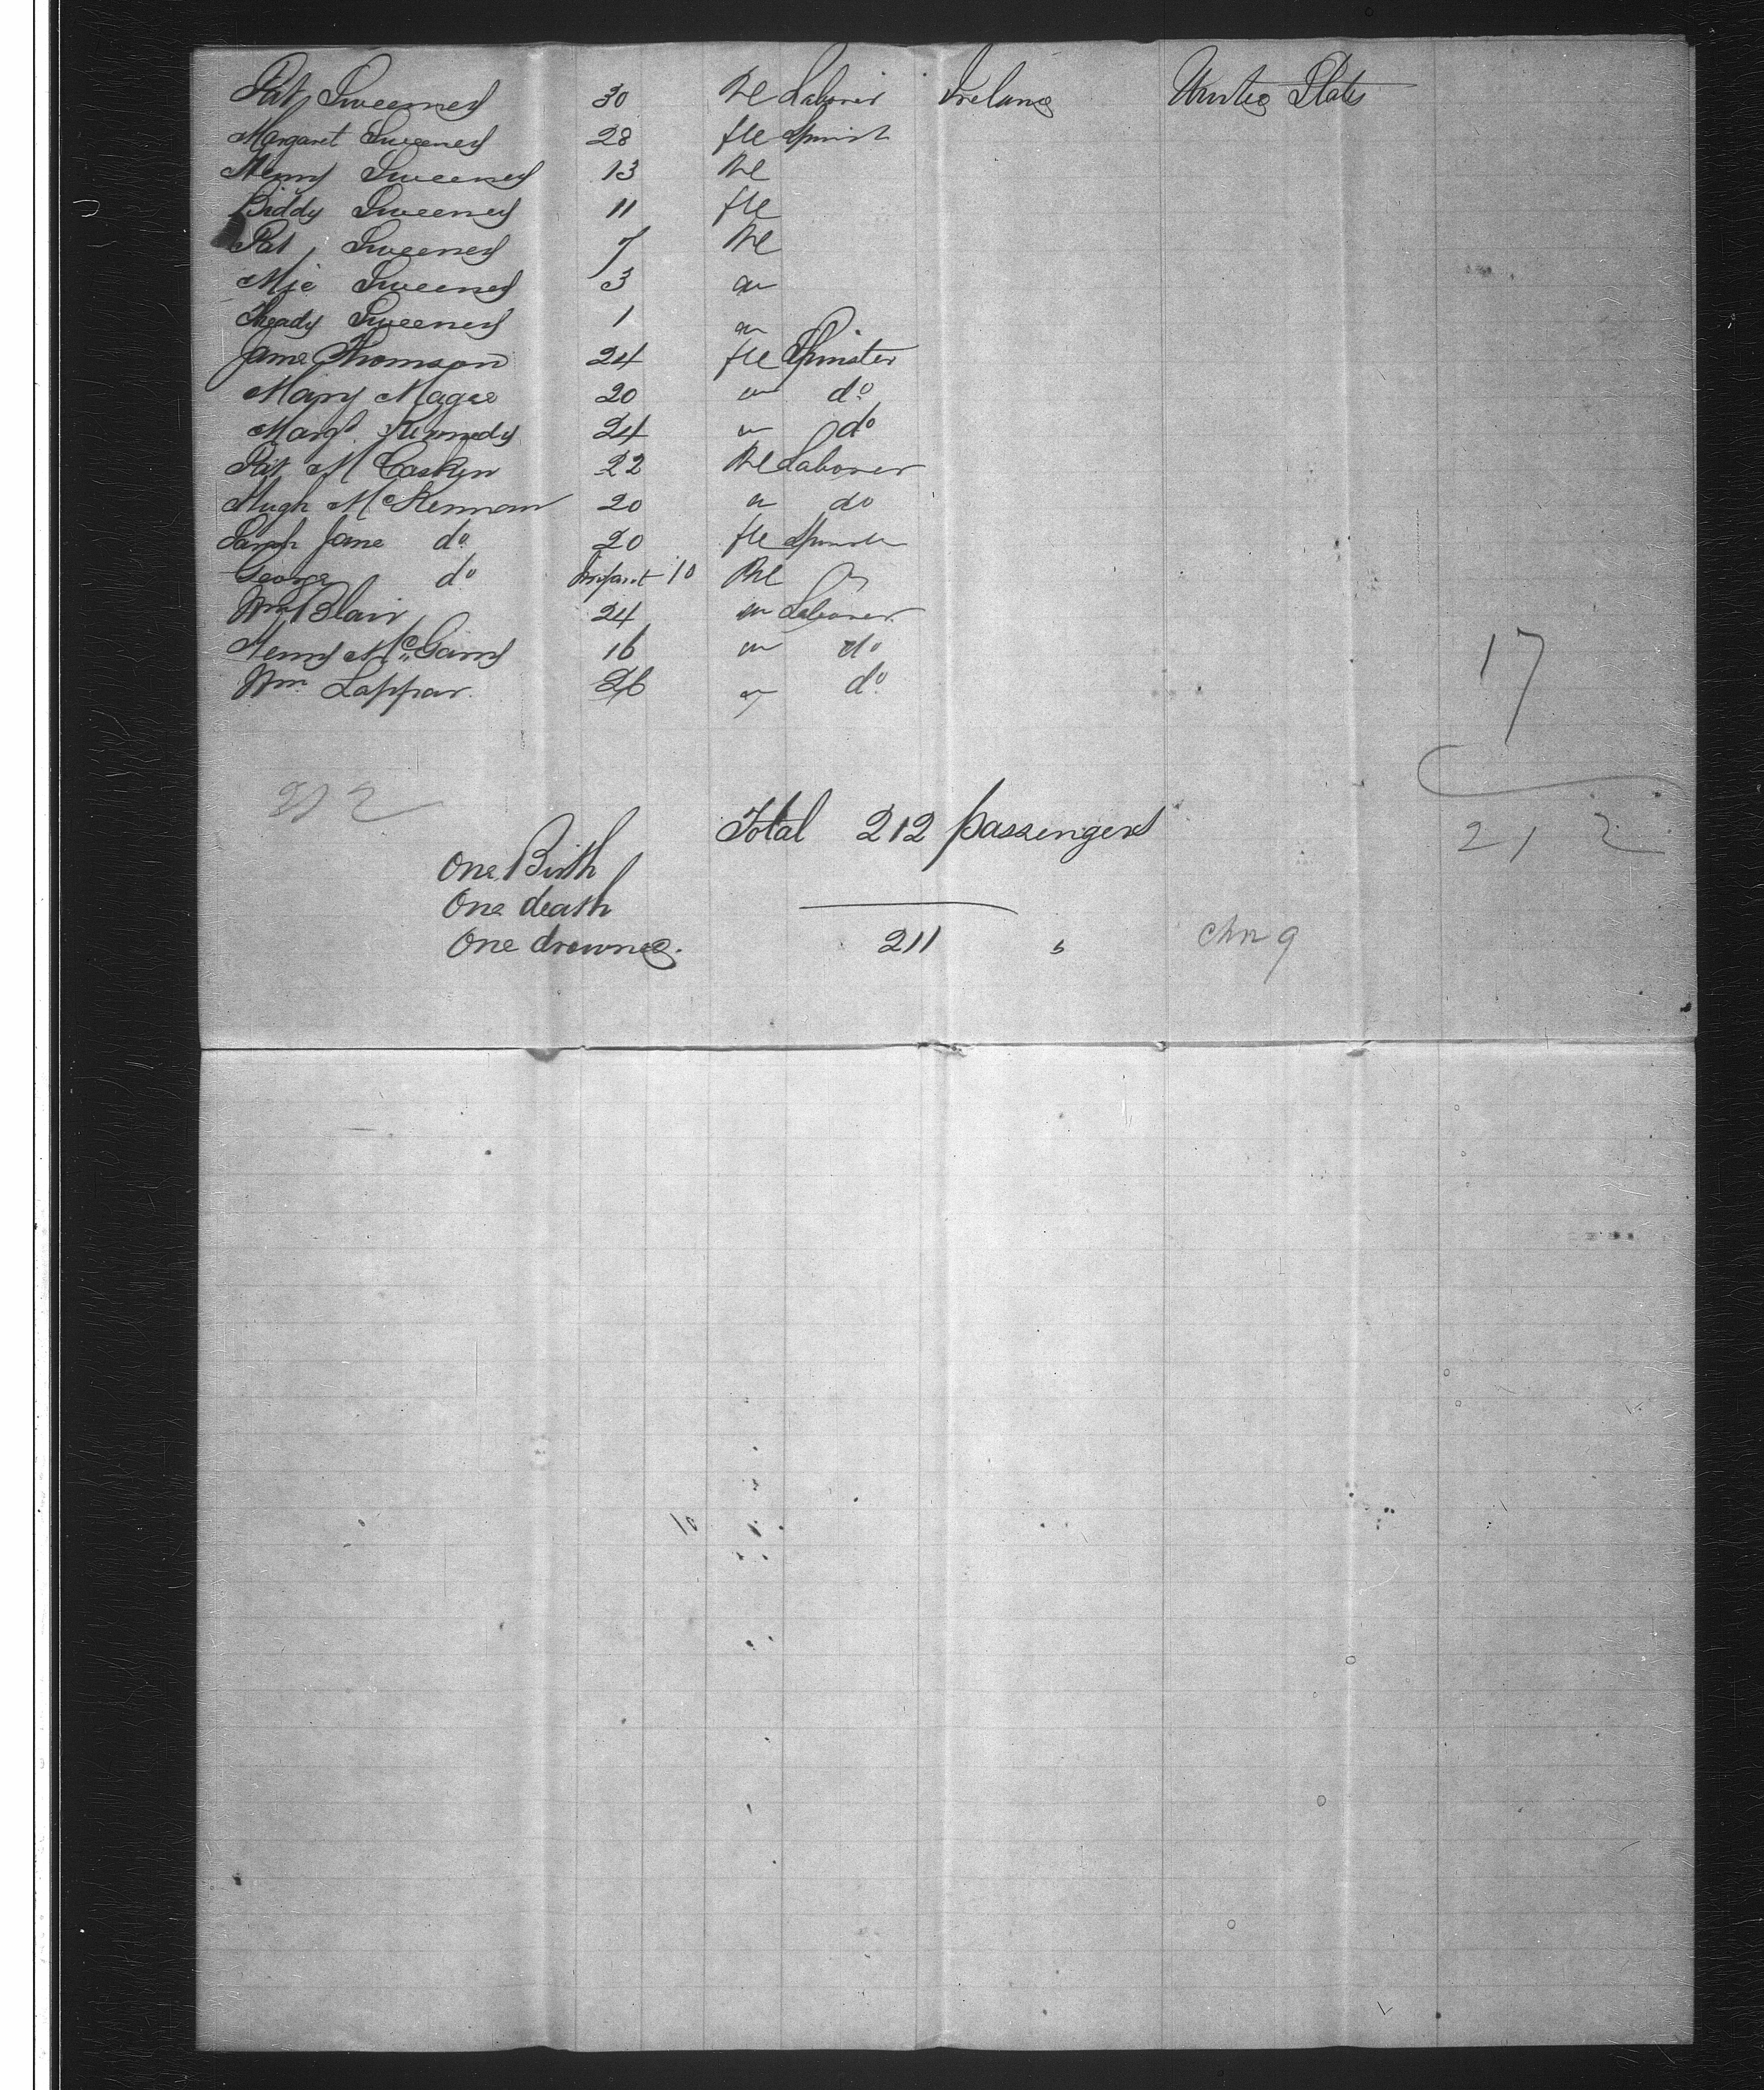 Pat Sweeney 30 Me Laborer Ireland United States
Margaret Sweeney 28 fle Spinst
Henry Sweeney 13 Me
Biddy Sweeney 11 fle
Pat Sweeney 7 Me
Mic Sweeney 3 "
Theady Sweeney 1 "
Jane Thomson 24 fle Spinster
Mary Magee 20 " do
Margt Kennedy 24 " do
Pat McCasken 22 Me Laborer
Hugh McKennan 20 " do
Sarah Jane do 20 fle Spinster
George do Infant 10 Me
Wm Blair 24 " Laborer
Henry McGarry 16 " do
Wm Lappar. 26 " do
17
212
Total 212 passengers
212
One Birth
One death
One drowned. 211 "